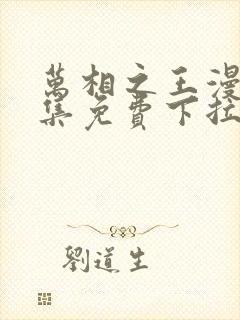 萬相之王漫
集免費下拉
劉道生